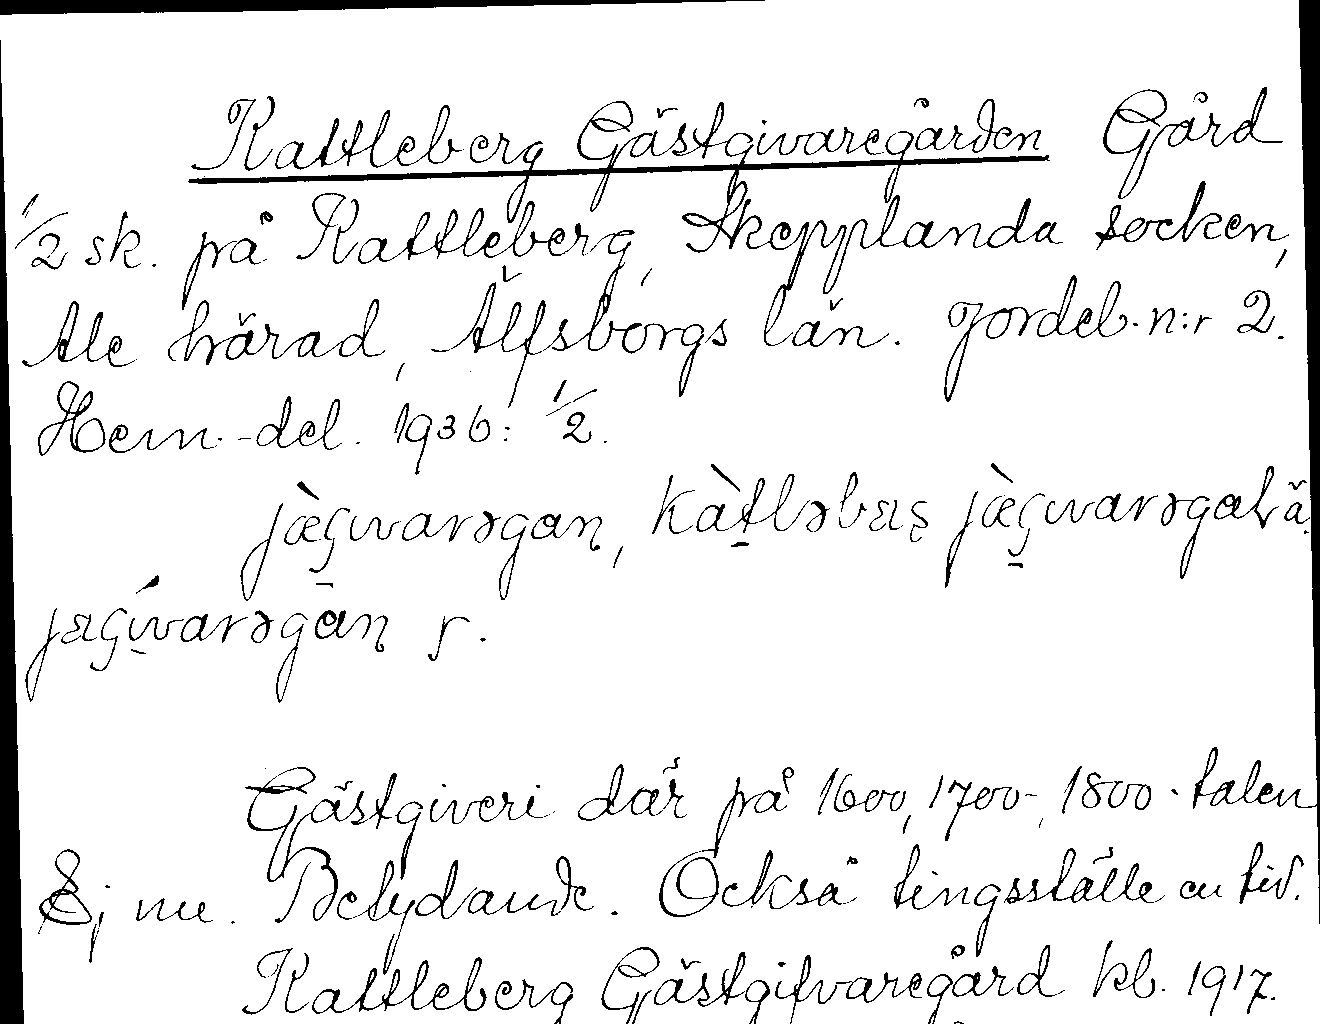 Kattleberg Gästgivaregården Gård
1/2 sk. på Kattleberg, Skepplanda socken,
Ale härad, Älfsborgs län. Jordeb. n:r 2.
Hem.-del. 1936: 1/2.
jæ̀ʂvarəgaɳ, kàtləbæɾs jæ̀ʂvarəgaɳ ä.
jæʂívarəgāɳ r.
Gästgiveri där på 1600, 1700-, 1800-talen
Ej nu. Betydande. Också tingsställe en tid.
Kattleberg Gästgifvaregård kb. 1917.